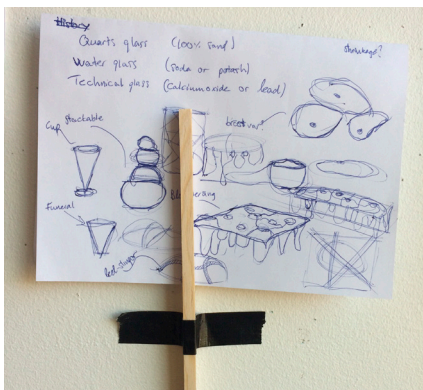 History
Quarts glass (100% sand)
Water glass (soda or potash)
Technical glass (calciumoxide or lead)
shrinkage?
Cup
stackable
Funeral